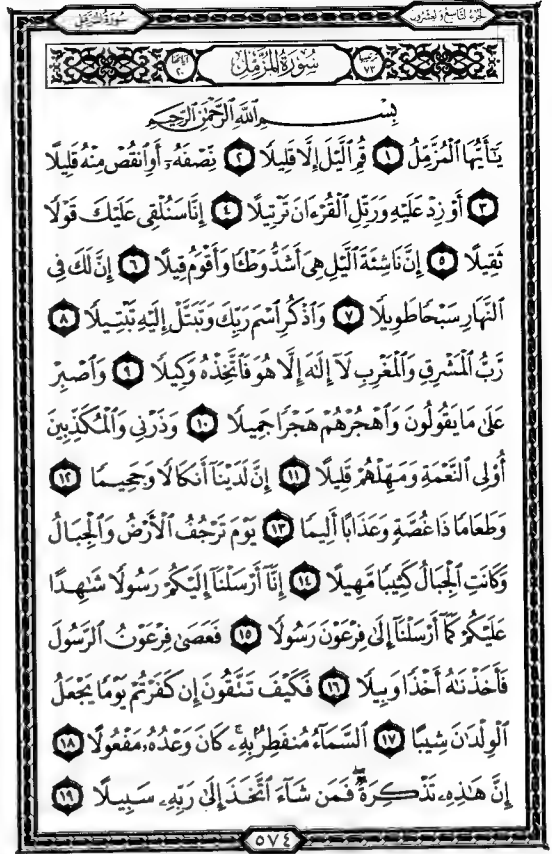 سُورَةُ المُزَّمِّل الجُزْءُ التَّاسِعُ وَالعِشْرُونَ
ترتيبها ٧٣ سُورَةُ المُزَّمِّلِ آياتها ٢٠
بِسْمِ ٱللَّهِ ٱلرَّحْمَٰنِ ٱلرَّحِيمِ
يَٰٓأَيُّهَا ٱلْمُزَّمِّلُ ١ قُمِ ٱلَّيْلَ إِلَّا قَلِيلًا ٢ نِّصْفَهُۥٓ أَوِ ٱنقُصْ مِنْهُ قَلِيلًا
٣ أَوْ زِدْ عَلَيْهِ وَرَتِّلِ ٱلْقُرْءَانَ تَرْتِيلًا ٤ إِنَّا سَنُلْقِى عَلَيْكَ قَوْلًا
ثَقِيلًا ٥ إِنَّ نَاشِئَةَ ٱلَّيْلِ هِىَ أَشَدُّ وَطْـًٔا وَأَقْوَمُ قِيلًا ٦ إِنَّ لَكَ فِى
ٱلنَّهَارِ سَبْحًا طَوِيلًا ٧ وَٱذْكُرِ ٱسْمَ رَبِّكَ وَتَبَتَّلْ إِلَيْهِ تَبْتِيلًا ٨
رَّبُّ ٱلْمَشْرِقِ وَٱلْمَغْرِبِ لَآ إِلَٰهَ إِلَّا هُوَ فَٱتَّخِذْهُ وَكِيلًا ٩ وَٱصْبِرْ
عَلَىٰ مَا يَقُولُونَ وَٱهْجُرْهُمْ هَجْرًا جَمِيلًا ١٠ وَذَرْنِى وَٱلْمُكَذِّبِينَ
أُو۟لِى ٱلنَّعْمَةِ وَمَهِّلْهُمْ قَلِيلًا ١١ إِنَّ لَدَيْنَآ أَنكَالًا وَجَحِيمًا ١٢
وَطَعَامًا ذَا غُصَّةٍ وَعَذَابًا أَلِيمًا ١٣ يَوْمَ تَرْجُفُ ٱلْأَرْضُ وَٱلْجِبَالُ
وَكَانَتِ ٱلْجِبَالُ كَثِيبًا مَّهِيلًا ١٤ إِنَّآ أَرْسَلْنَآ إِلَيْكُمْ رَسُولًا شَٰهِدًا
عَلَيْكُمْ كَمَآ أَرْسَلْنَآ إِلَىٰ فِرْعَوْنَ رَسُولًا ١٥ فَعَصَىٰ فِرْعَوْنُ ٱلرَّسُولَ
فَأَخَذْنَٰهُ أَخْذًا وَبِيلًا ١٦ فَكَيْفَ تَتَّقُونَ إِن كَفَرْتُمْ يَوْمًا يَجْعَلُ
ٱلْوِلْدَٰنَ شِيبًا ١٧ ٱلسَّمَآءُ مُنفَطِرٌۢ بِهِۦ ۚ كَانَ وَعْدُهُۥ مَفْعُولًا ١٨
إِنَّ هَٰذِهِۦ تَذْكِرَةٌ ۖ فَمَن شَآءَ ٱتَّخَذَ إِلَىٰ رَبِّهِۦ سَبِيلًا ١٩
٥٧٤